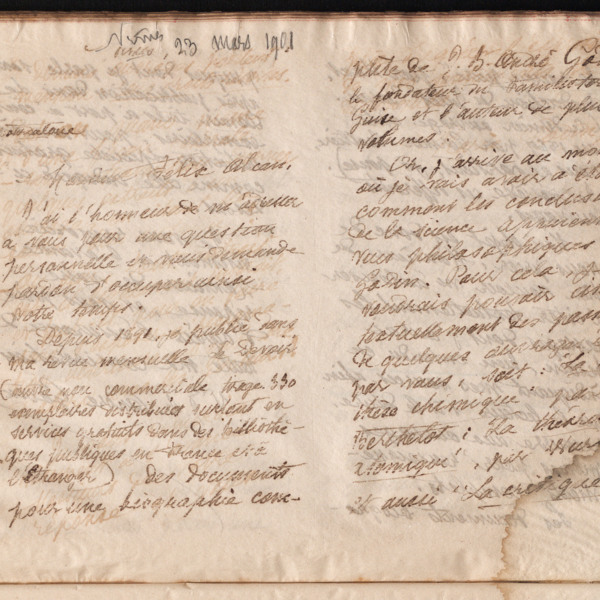 Nîmes, 23 mars 1901
Monsieur Félix Alcan,
J'ai l'honneur de m'adresser
à vous pour une question
personnelle et vous demande
pardon d'occuper ainsi
votre temps.
Depuis 1891, je publie dans
ma revue mensuelle le Devoir
(œuvre non commerciale tirage 330
exemplaires distribués surtout en
services gratuits dans des bibliothè-
ques publiques en France et à
l'étranger) des documents
pour une biographie com-
plète de J. Bte André God
le fondateur du Familistère
Guise et l'auteur de plu
volumes.
Or, j'arrive au mo
où je vais avoir à
comment les conclus
de la science
vues philosophiques
Godin. Pour cela je
voudrais pouvoir
textuellement des pas
de quelques ouvrages
par vous, soit : La
thèse chimique, par
Berthelot ; La théorie
atomique, par Wur
et aussi La